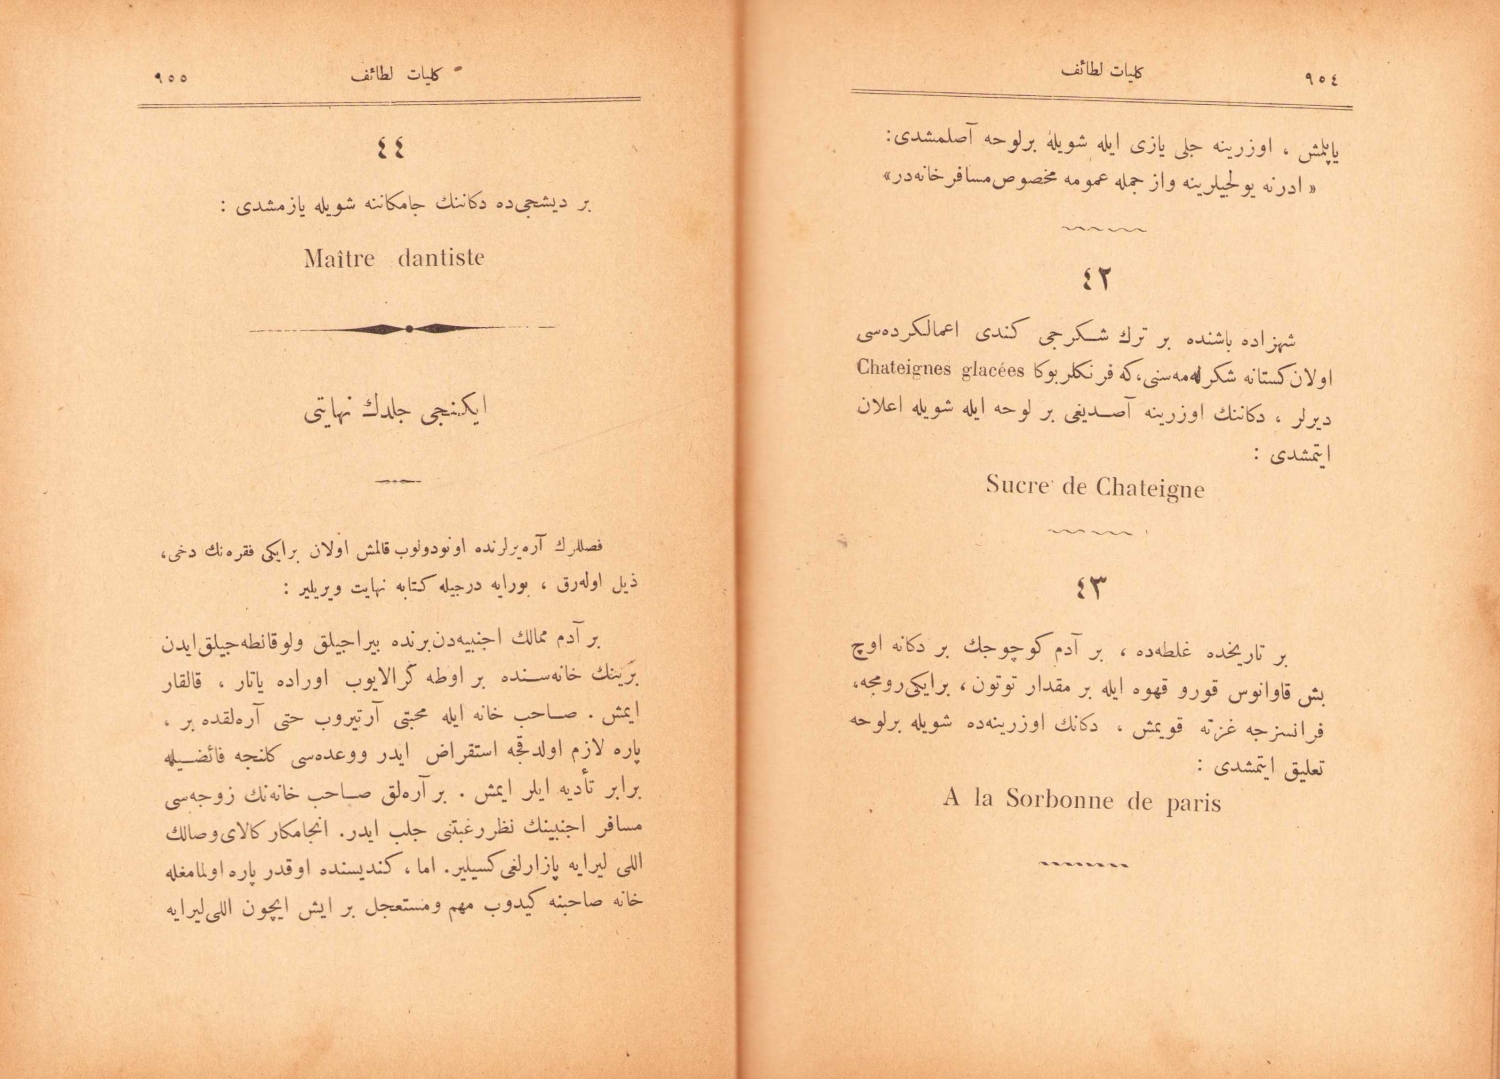 ٩٥٤ كليات لطائف
ياپلمش ، اوزرينه جلى يازى ايله شويله برلوحه آصلمشدى:
« ادرنه يولجيلرينه واز جمله عمومه مخصوص مسافرخانه در»
٤٢
شهزاده باشنده بر ترك شكرجى كندى اعمالكرده سى
اولان كستانه شكرلمه سنى، كه فرنكلر بوكا Chateignes glacées
ديرلر ، دكاننك اوزرينه آصديغى بر لوحه ايله شويله اعلان
ايتمشدى :
Sucre de Chateigne
٤٣
بر تاريخده غلطه ده ، بر آدم كوچوجك بر دكانه اوچ
بش قاوانوس قورو قهوه ايله بر مقدار توتون، برايكى رومجه،
فرانسزجه غزته قويمش ، دكانك اوزرينه ده شويله برلوحه
تعليق ايتمشدى :
A la Sorbonne de paris
كليات لطائف ٩٥٥
٤٤
بر ديشجى ده دكاننك جامكاننه شويله يازمشدى :
Maître dantiste
ايكنجى جلدك نهايتى
فصللرك آره يرلرنده اونودولوب قالمش اولان برايكى فقره نك دخى،
ذيل اوله رق ، بورايه درجيله كتابه نهايت ويريلير :
بر آدم ممالك اجنبيه دن برنده بيراجيلق ولوقانطه جيلق ايدن
برينك خانه سنده بر اوطه كرالايوب اوراده ياتار ، قالقار
ايمش . صاحب خانه ايله محبتى آرتيروب حتى آره لقده بر ،
پاره لازم اولدقجه استقراض ايدر ووعده سى كلنجه فائضيله
برابر تأديه ايلر ايمش . بر آره لق صاحب خانه نك زوجه سى
مسافر اجنبينك نظر رغبتنى جلب ايدر. انجامكار كالاى وصالك
اللى ليرايه پازارلغى كسيلير. اما، كنديسنده اوقدر پاره اولمامغله
خانه صاحبنه كيدوب مهم ومستعجل بر ايش ايچون اللى ليرايه